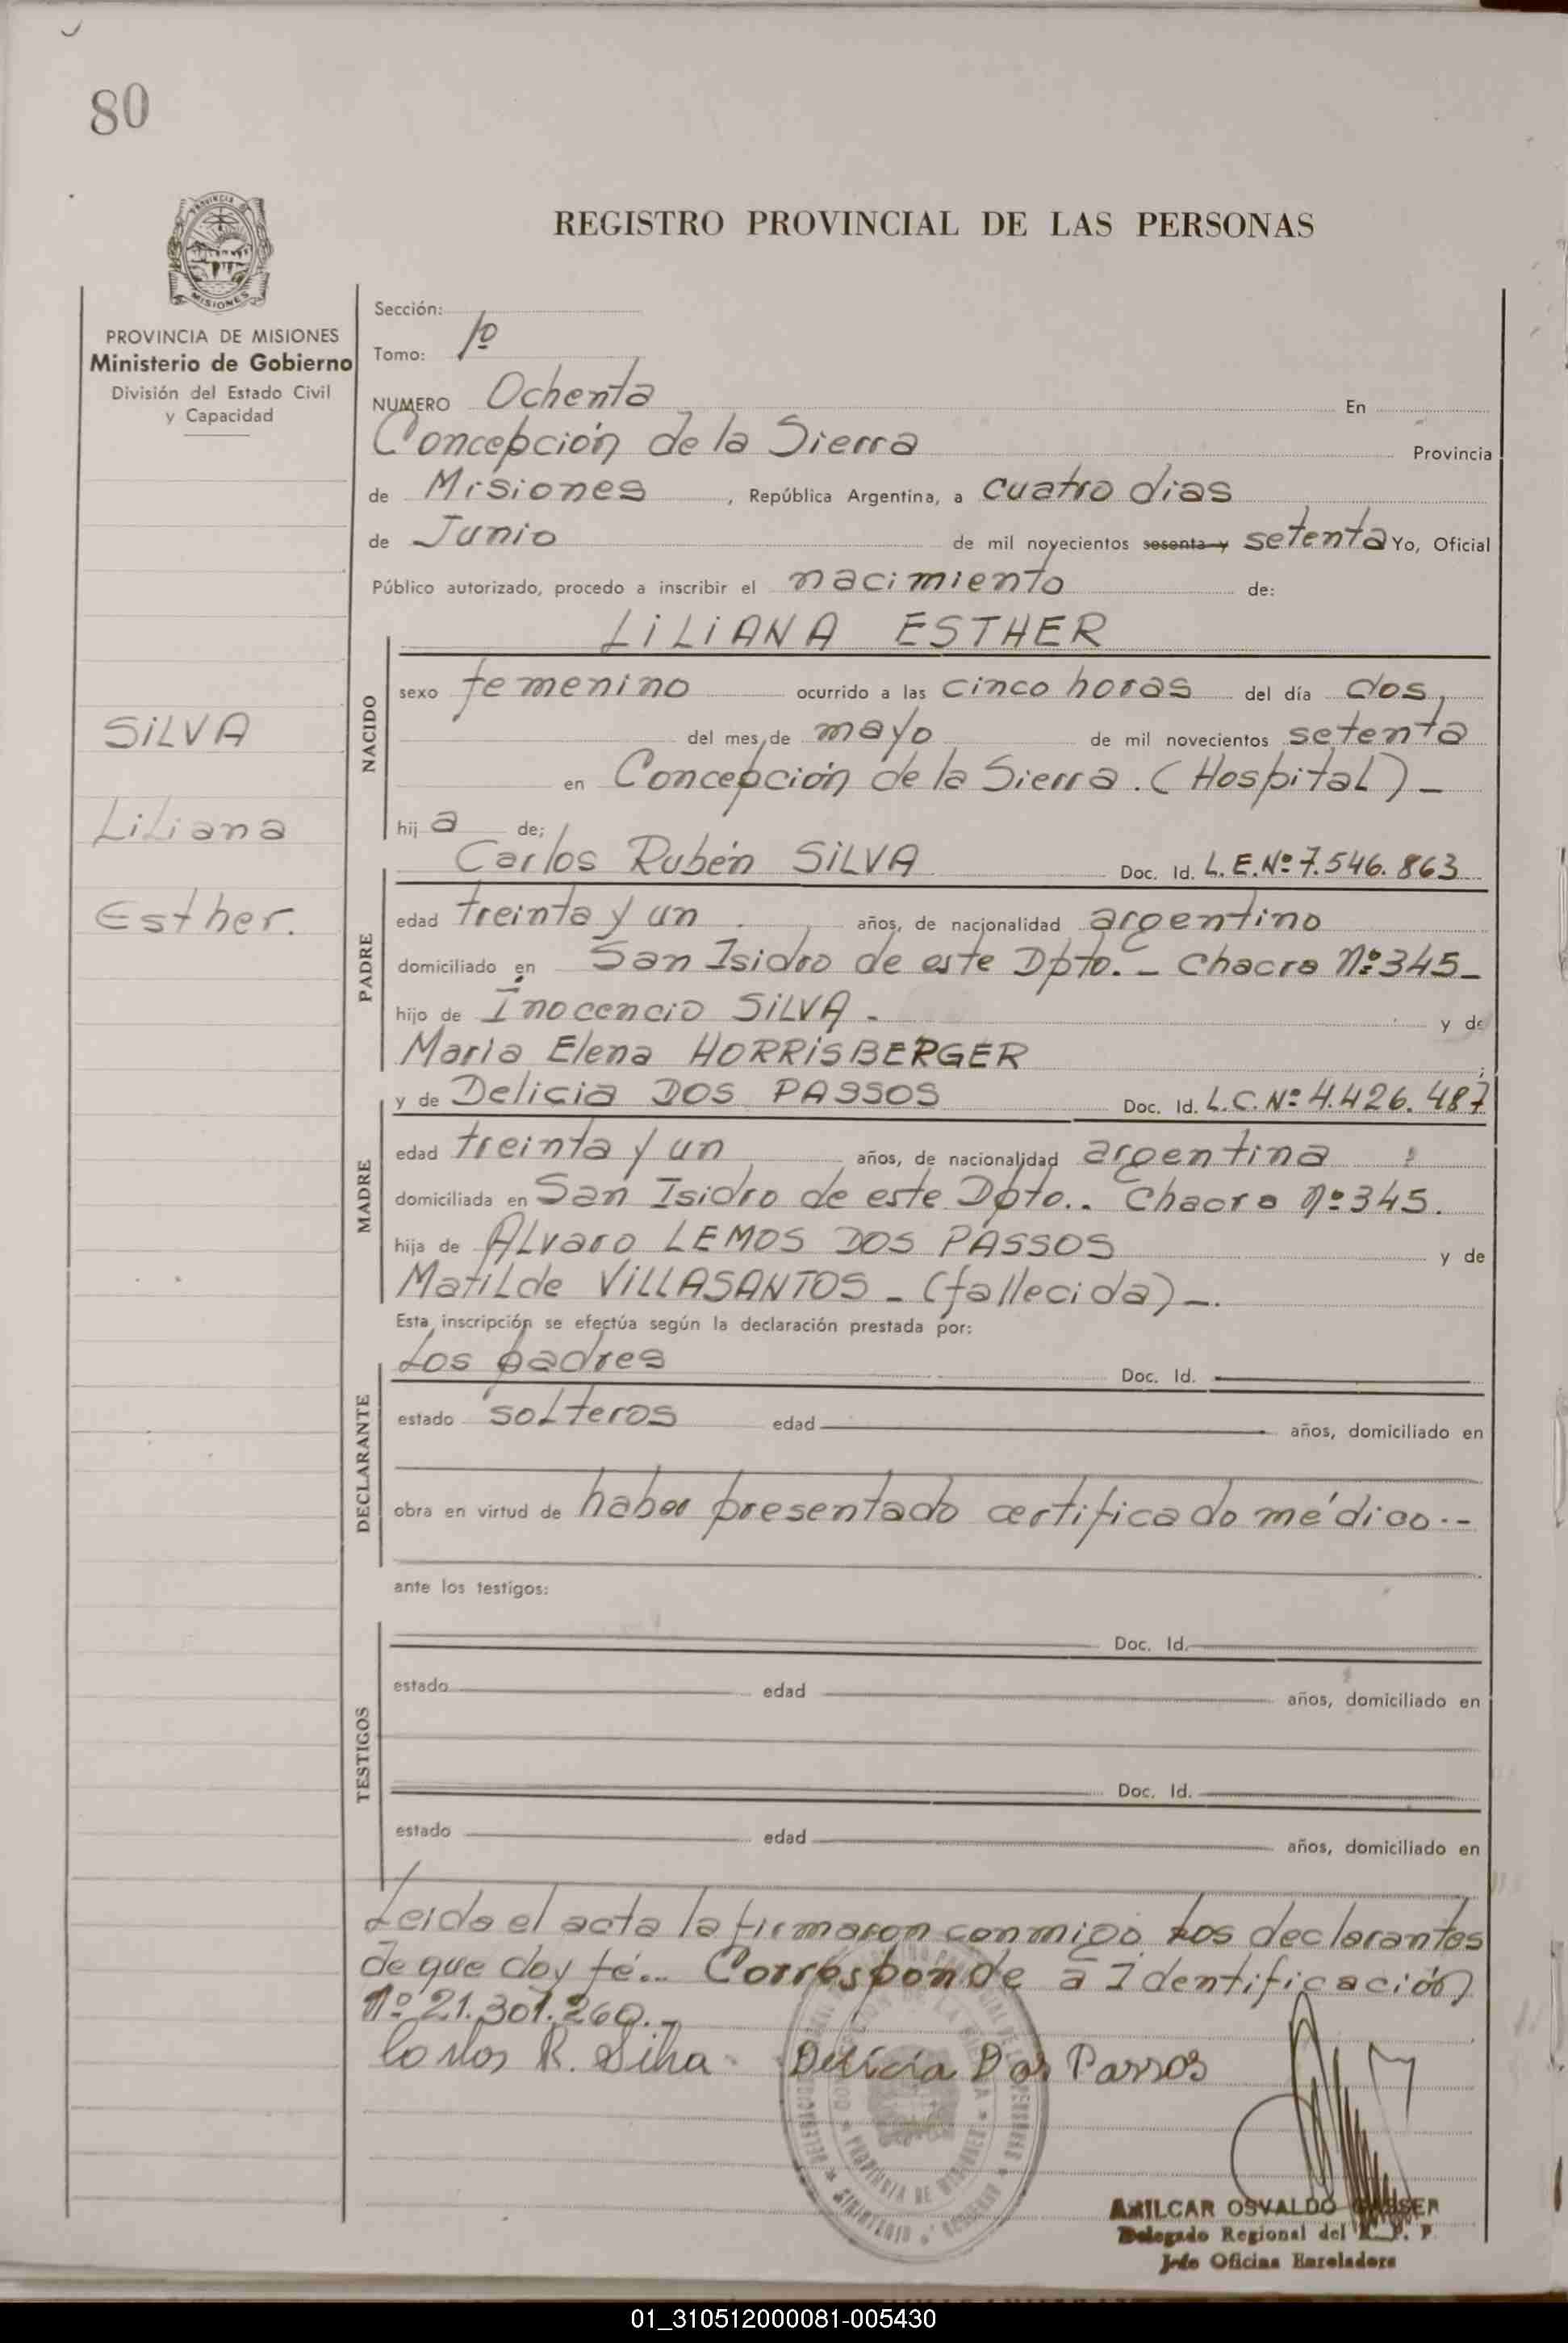 80
PROVINCIA DE
MISIONES
REGISTRO PROVINCIAL DE LAS PERSONAS
PROVINCIA DE MISIONES
Ministerio de Gobierno
División del Estado Civil
y Capacidad
SILVA
Liliana
Esther.
Sección:
Tomo: 1º
NUMERO Ochenta En
Concepción de la Sierra Provincia
de Misiones, República Argentina, a cuatro dias
de Junio de mil novecientos sesenta y setenta Yo, Oficial
Público autorizado, procedo a inscribir el nacimiento de:
LILIANA ESTHER
NACIDO
sexo femenino ocurrido a las cinco horas del día dos,
del mes de mayo de mil novecientos setenta
en Concepción de la Sierra. (Hospital) -
hija de;
Carlos Rubén SILVA Doc. Id. L.E.Nº 7.546.863
PADRE
edad treinta y un años, de nacionalidad argentino
domiciliado en San Isidro de este Dpto. - Chacra Nº 345-
hijo de Inocencio SILVA - y de
Maria Elena HORRISBERGER ;
y de Delicia DOS PASSOS Doc. Id. L.C. Nº 4.426.487
MADRE
edad treinta y un años, de nacionalidad argentina
domiciliada en San Isidro de este Dpto.. Chacra Nº 345.
hija de Alvaro LEMOS DOS PASSOS y de
Matilde VILLASANTOS - (fallecida) -.
Esta inscripción se efectúa según la declaración prestada por:
Los padres Doc. Id.
DECLARANTE
estado solteros edad años, domiciliado en
obra en virtud de haber presentado certificado médico.-
ante los testigos:
TESTIGOS
Doc. Id.
estado edad años, domiciliado en
Doc. Id.
estado edad años, domiciliado en
Leida el acta la firmaron conmigo los declarantes
de que doy fé... Corresponde a Identificación
Nº 21.301.260.-
Carlos R. Silva Delicia Dos Passos
PROVINCIA DE MISIONES
AMILCAR OSVALDO
Delegado Regional del R. P. P.
Jefe Oficina Enroladora
01_310512000081-005430